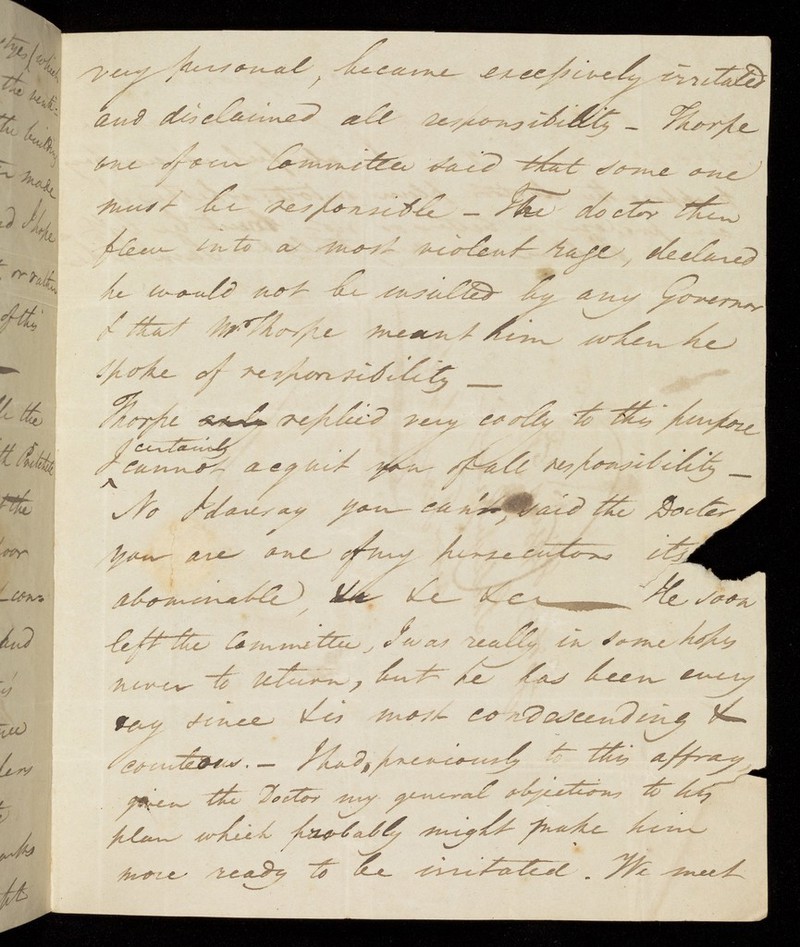 very personal, became excessively irritated
and disclaimed all responsibility – Thorpe
one of our Committee said that some one
must be responsible – The doctor then
flew into a most violent rage, declared
he would not be insulted by any Governor
& that Mr Thorpe meant him when he
spoke of responsibility –
Thorpe only replied very coolly to this purpose
certainly
I ^ cannot acquit you of all responsibility –
No I daresay you can't, said the Doctor
you are one of my persecutors its
abominable, &c &c &c — He soon
left the Committee, I was really in some hopes
never to return, but he has been every
day since & is most condescending &
courteous. – I had, previously to this affray,
given the Doctor my general objections to his
plan which probably might make him
more ready to be irritated. We meet
otyes (which
the
the building
made
and I hope
or rather
of this
the
the
con=
And